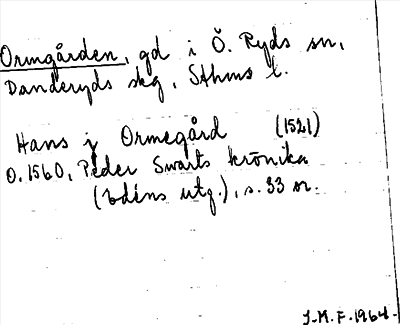 Ormgården, gd i Ö. Ryds sn,
Danderyds skg, Sthms l.
Hans j Ormegård (1521)
O. 1560, Peder Swarts krönika
(Edéns utg.), s. 33 nr.
J.M.F. 1964.